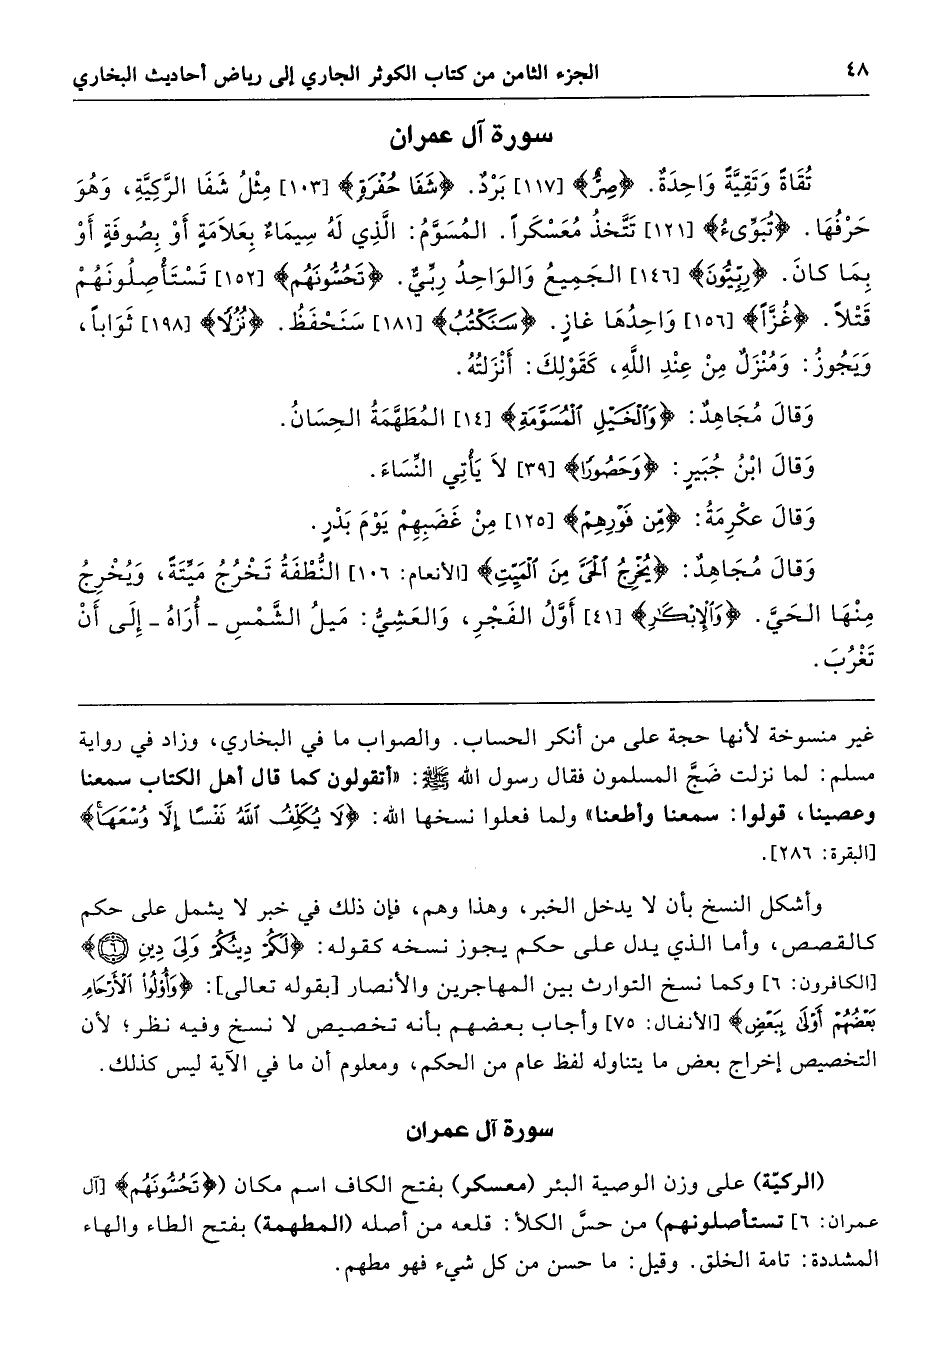 ٤٨
الجزء الثامن من كتاب الكوثر الجاري إلى رياض أحاديث البخاري
سورة آل عمران
تُقَاةً وَتَقِيَّةً وَاحِدَةً. ﴿صِرٌّ﴾ [١١٧] بَرْدٌ. ﴿شَفَا حُفْرَةٍ﴾ [١٠٣] مِثْلُ شَفَا الرَّكِيَّةِ، وَهُوَ
حَرْفُهَا. ﴿تُبَوِّىءُ﴾ [١٢١] تَتَّخِذُ مُعَسْكَراً. المُسَوَّمُ: الَّذِي لَهُ سِيمَاءٌ بِعَلَامَةٍ أَوْ بِصُوفَةٍ أَوْ
بِمَا كانَ. ﴿رِبِّيُّونَ﴾ [١٤٦] الجَمِيعُ وَالوَاحِدُ رِبِّيٌّ. ﴿تَحُسُّونَهُم﴾ [١٥٢] تَسْتَأْصِلُونَهُمْ
قَتْلاً. ﴿غُزًّا﴾ [١٥٦] وَاحِدُهَا غازٍ. ﴿سَنَكْتُبُ﴾ [١٨١] سَنَحْفَظُ. ﴿نُزُلًا﴾ [١٩٨] ثَوَاباً،
وَيَجُوزُ: وَمُنْزَلٌ مِنْ عِنْدِ اللَّهِ، كَقَوْلِكَ: أَنْزَلتُهُ.
وَقالَ مُجَاهِدٌ: ﴿وَٱلْخَيْلِ ٱلْمُسَوَّمَةِ﴾ [١٤] المُطَهَّمَةُ الحِسَانُ.
وَقالَ ابْنُ جُبَيرٍ: ﴿وَحَصُورًا﴾ [٣٩] لاَ يَأْتِي النِّسَاءَ.
وَقالَ عكْرِمَةُ: ﴿مِّن فَوْرِهِمْ﴾ [١٢٥] مِنْ غَضَبِهِمْ يَوْمَ بَدْرٍ.
وَقالَ مُجَاهِدٌ: ﴿يُخْرِجُ ٱلْحَىَّ مِنَ ٱلْمَيِّتِ﴾ [الأنعام: ١٠٦] النُّطْفَةُ تَخْرُجُ مَيِّتَةً، وَيُخْرِجُ
مِنْهَا الحَيَّ. ﴿وَٱلْإِبْكَٰرِ﴾ [٤١] أَوَّلُ الفَجْرِ، وَالعَشِيُّ: مَيلُ الشَّمْسِ - أُرَاهُ - إِلَى أَنْ
تَغْرُبَ.
غير منسوخة لأنها حجة على من أنكر الحساب. والصواب ما في البخاري، وزاد في رواية
مسلم: لما نزلت ضَجَّ المسلمون فقال رسول الله ﷺ: «أتقولون كما قال أهل الكتاب سمعنا
وعصينا، قولوا: سمعنا وأطعنا» ولما فعلوا نسخها الله: ﴿لَا يُكَلِّفُ ٱللَّهُ نَفْسًا إِلَّا وُسْعَهَاۚ﴾
[البقرة: ٢٨٦].
وأشكل النسخ بأن لا يدخل الخبر، وهذا وهم، فإن ذلك في خبر لا يشمل على حكم
كالقصص، وأما الذي يدل على حكم يجوز نسخه كقوله: ﴿لَكُمْ دِينُكُمْ وَلِىَ دِينِ ۝٦﴾
[الكافرون: ٦] وكما نسخ التوارث بين المهاجرين والأنصار [بقوله تعالى]: ﴿وَأُوْلُوا۟ ٱلْأَرْحَامِ
بَعْضُهُمْ أَوْلَىٰ بِبَعْضٍ﴾ [الأنفال: ٧٥] وأجاب بعضهم بأنه تخصيص لا نسخ وفيه نظر؛ لأن
التخصيص إخراج بعض ما يتناوله لفظ عام من الحكم، ومعلوم أن ما في الآية ليس كذلك.
سورة آل عمران
(الركيّة) على وزن الوصية البئر (معسكر) بفتح الكاف اسم مكان (﴿تَحُسُّونَهُم﴾ [آل
عمران: ٦] تستأصلونهم) من حسَّ الكلأ: قلعه من أصله (المطهمة) بفتح الطاء والهاء
المشددة: تامة الخلق. وقيل: ما حسن من كل شيء فهو مطهم.